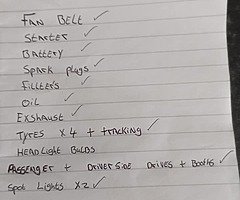 FAN BELT ✓
STARTER ✓
BATTERY ✓
SPARK plugs ✓
FILLTERS ✓
OIL ✓
EXSHAUST ✓
TYRES X 4 + tracking ✓
HEADLIGHT BULBS
PASSENGER + DRIVER SIDE DRIVES + BOOTHS ✓
SPOT LIGHTS X2 ✓